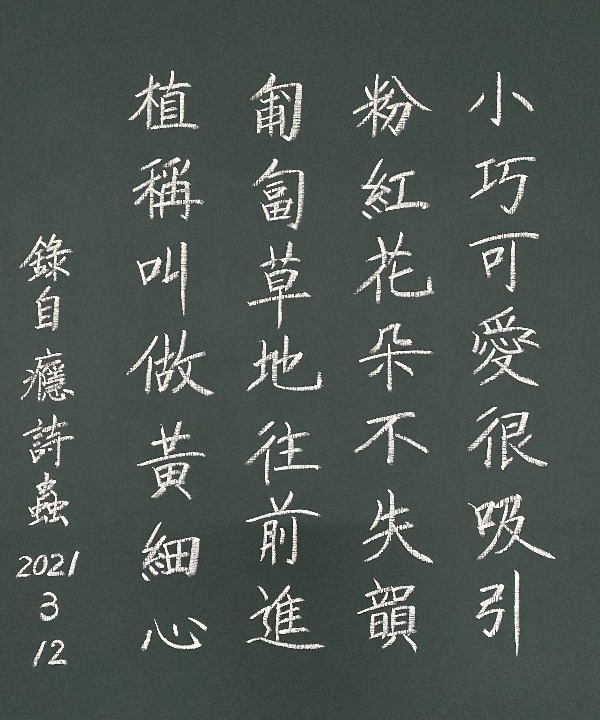 小巧可愛很吸引
粉紅花朵不失韻
匍匐草地往前進
植稱叫做黃細心
錄自癮詩蟲
2021
3
12